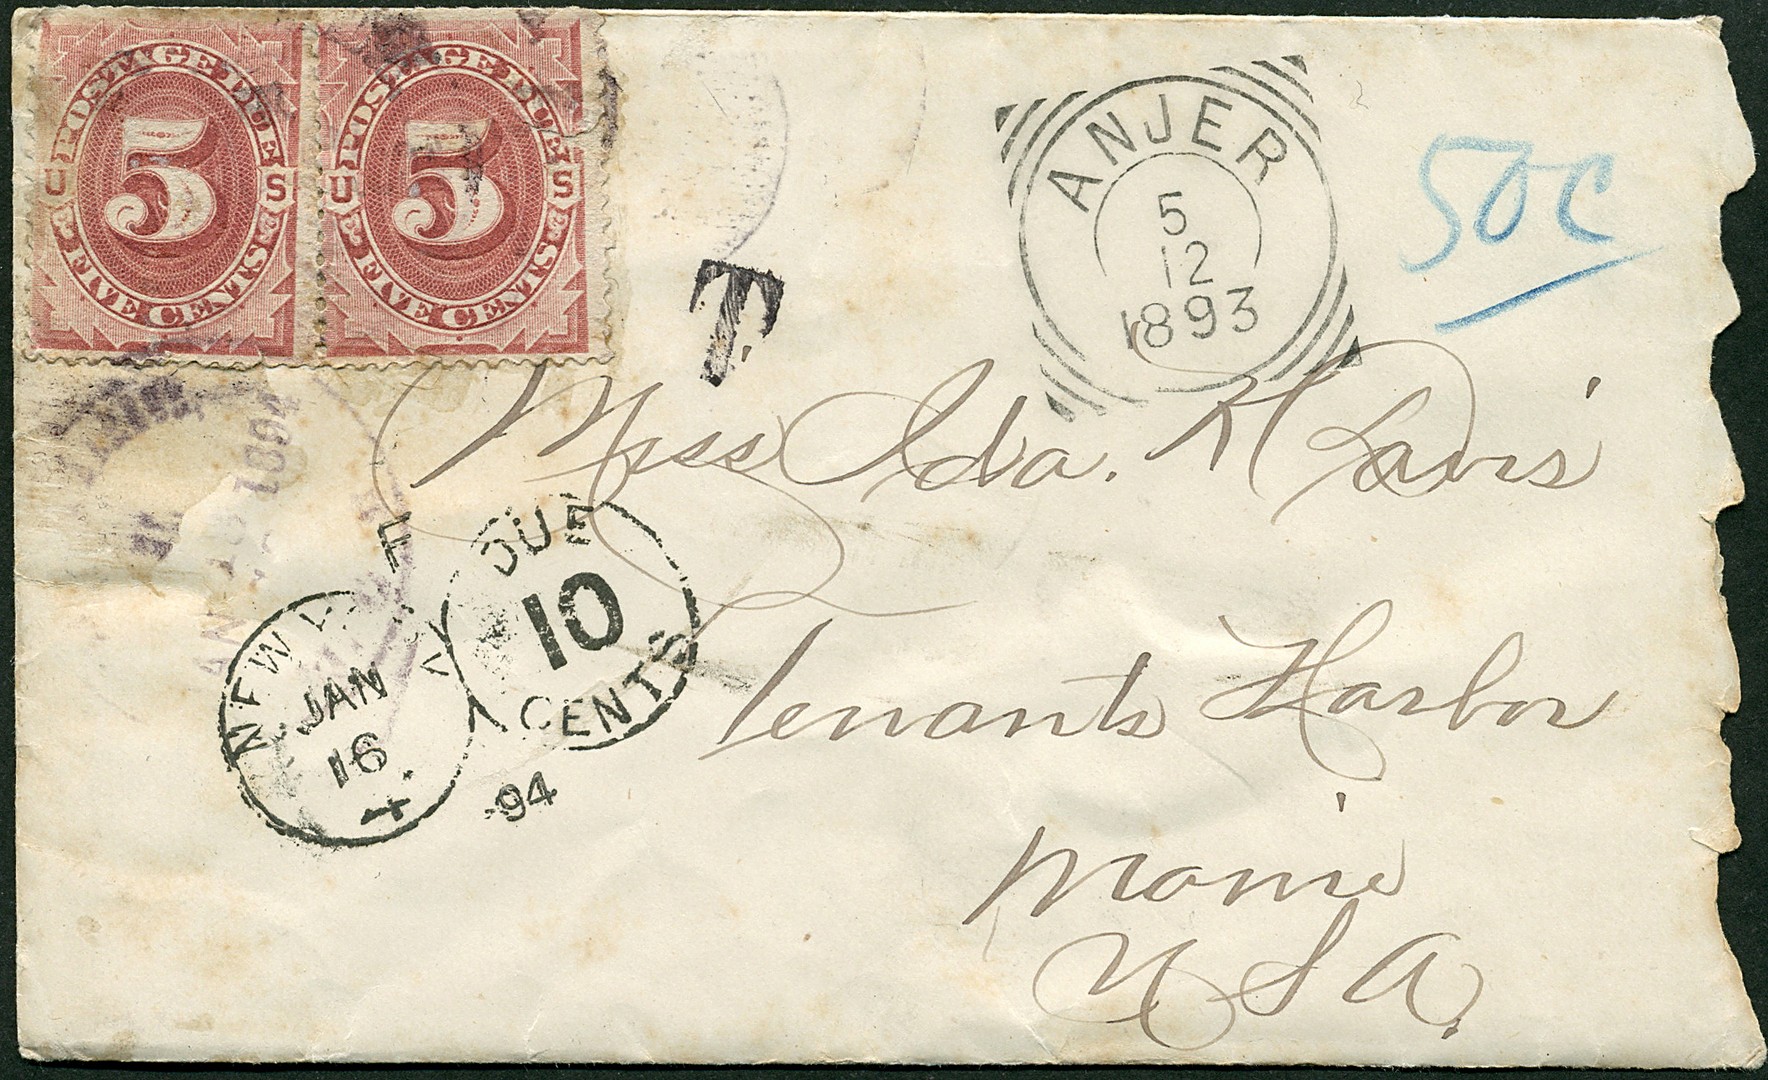 POSTAGE DUE
U 5 S
FIVE CENTS
POSTAGE DUE
U 5 S
FIVE CENTS
ANJER
5
12
1893
50c
T
Miss Ida. H Davis
Tenants Harbor
Maine
U S A.
1894
NEW
JAN
16
DUE
10
CENTS
94